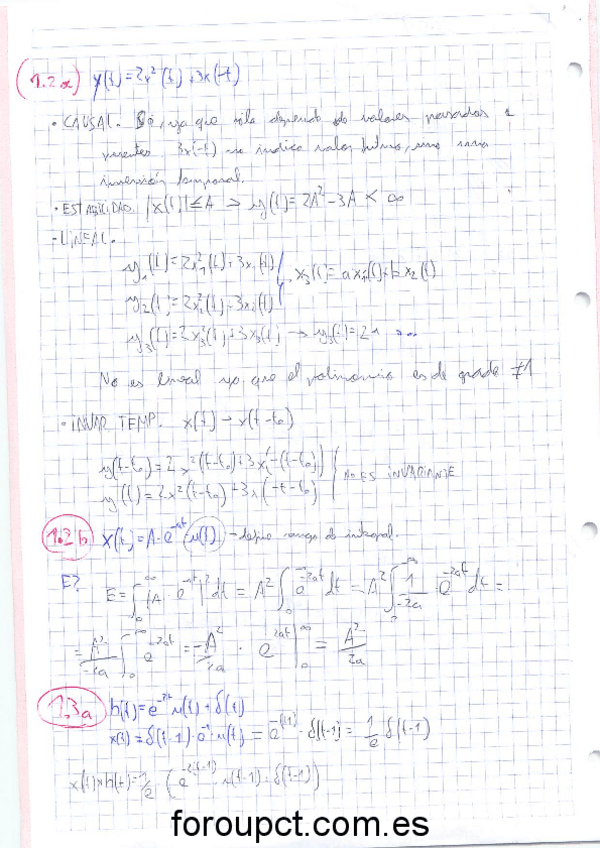 1.2a) y(t)=2x²(t)+3x(-t)
• CAUSAL. Sí, ya que sólo depende de valores pasados o
presentes. 3x(-t) no indica valor futuro, sino una
inversión temporal.
• ESTABILIDAD. |x(t)| ≤ A → y(t)=2A²-3A < ∞
- LINEAL.
y₁(t)=2x₁²(t)+3x₁(t)
x₃(t)=ax₁(t)+bx₂(t)
y₂(t)=2x₂²(t)+3x₂(t)
y₃(t)=2x₃²(t)+3x₃(t) → y₃(t)=2
No es lineal ya que el polinomio es de grado ≠1
• INVAR TEMP. x(t) → x(t-t₀)
y(t-t₀)=2x²(t-t₀)+3x(-(t-t₀))
NO ES INVARIANTE
y(t)=2x²(t-t₀)+3x(-t-t₀)
1.2b x(t)=A·e^-at u(t) - rango de integral.
E? E=∫₀^∞ |A·e^-at|² dt = A² ∫₀^∞ e^-2at dt = A² ∫₀^∞ 1/-2a · e^-2at dt =
= A²/-2a ∫₀^∞ e^-2at = -A²/2a · e^2at |₀^∞ = A²/2a
1.3a h(t)=e^-2t u(t)+δ(t)
x(t)=δ(t-1)·e^-t·u(t)=e^-(t-1)·δ(t-1)=1/e δ(t-1)
x(t)*h(t)=1/e (e^-2(t-1)·u(t-1)+δ(t-1))
foroupct.com.es